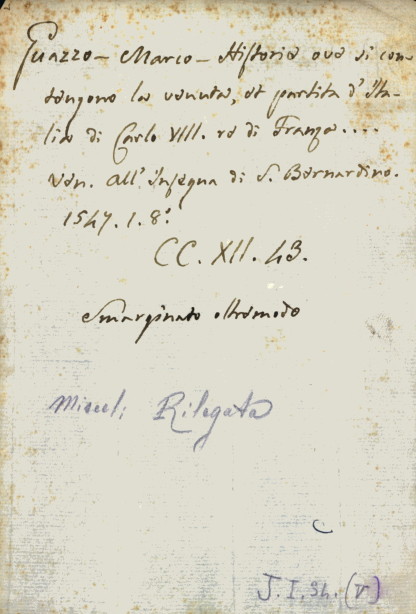 Guazzo - Marco - Historie ove si con-
tengono la venuta, et partita d'Ita-
lia di Carlo VIII. re di Franza....
Ven. all'Insegna di S. Bernardino.
1547. 1. 8º
CC. XII. 43.
Smarginato oltremodo
Miscel; Rilegata
J. I. (V)